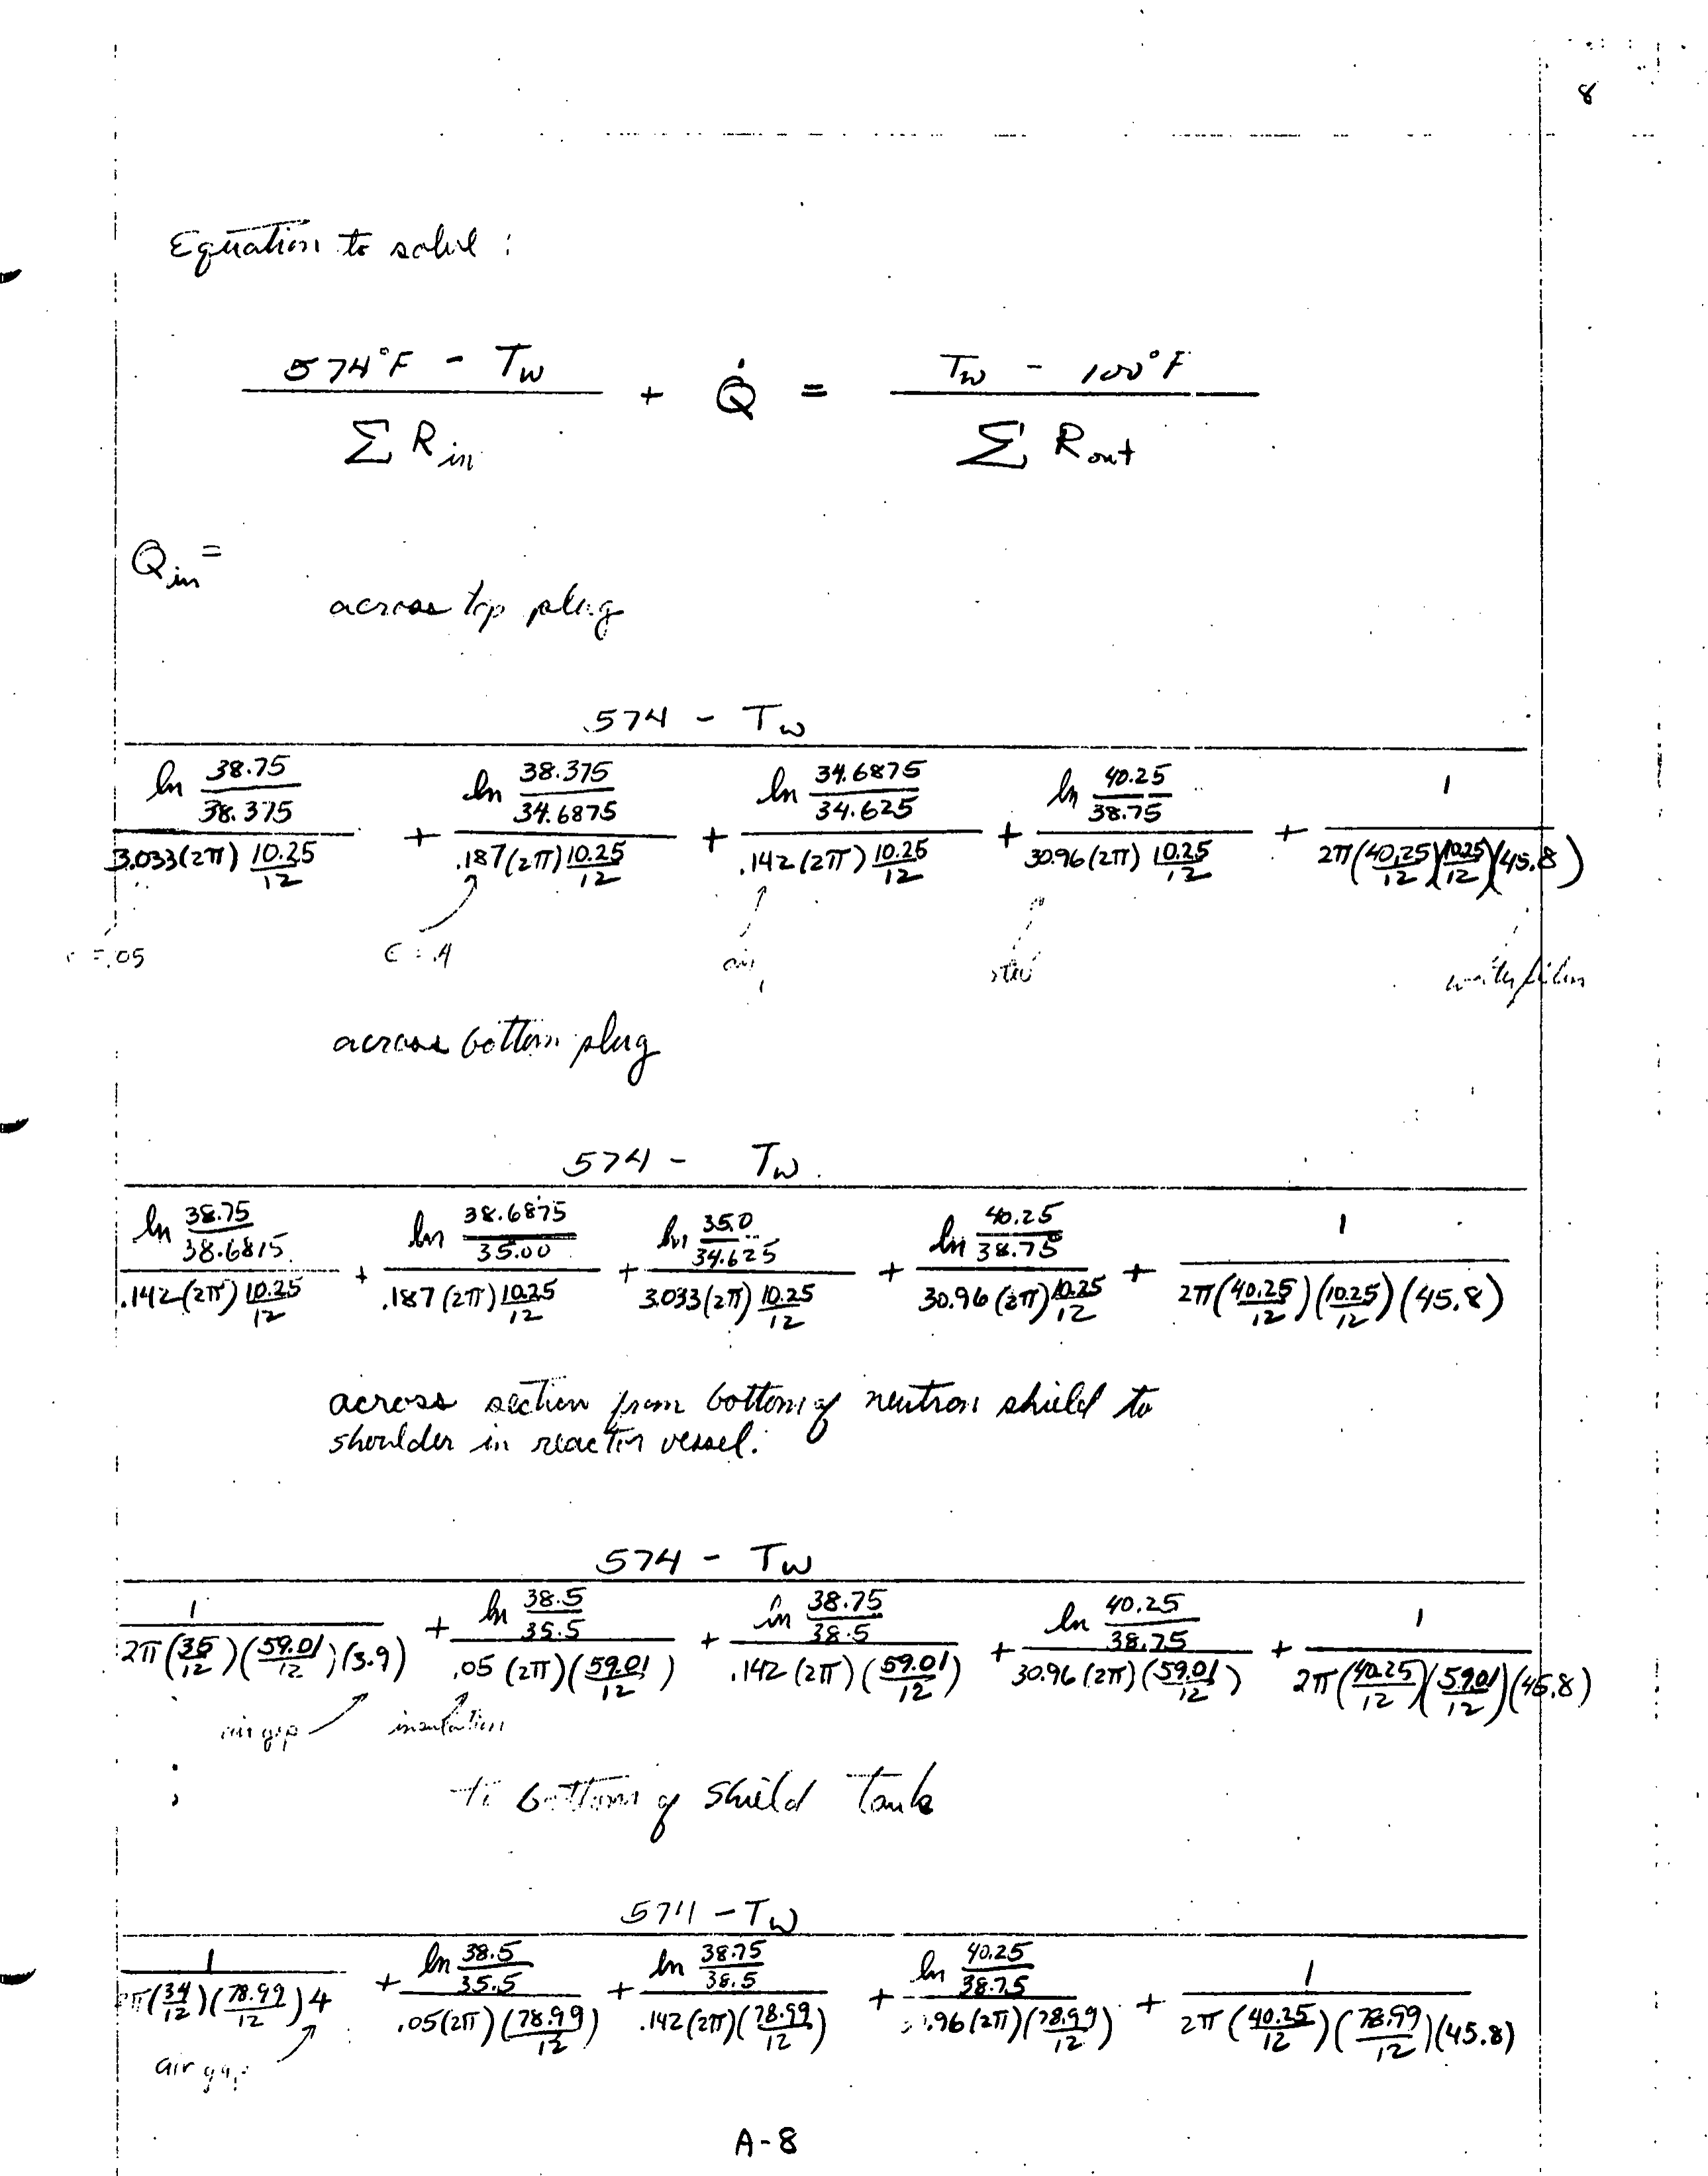 8
Equation to solve :
574°F - Tw / Σ Rin + Q̇ = Tw - 100°F / Σ Rout
Qin =
across top plug
574 - Tw
ln 38.75/38.375 / 3.033(2π) 10.25/12 + ln 38.375/34.6875 / .187(2π) 10.25/12 + ln 34.6875/34.625 / .142(2π) 10.25/12 + ln 40.25/38.75 / 30.96(2π) 10.25/12 + 1 / 2π(40.25/12)(10.25/12)(45.8)
=.05 ϵ = .4 air steel water film
across bottom plug
574 - Tw
ln 38.75/38.6875 / .142(2π) 10.25/12 + ln 38.6875/35.00 / .187(2π) 10.25/12 + ln 35.0/34.625 / 3.033(2π) 10.25/12 + ln 40.25/38.75 / 30.96(2π) 10.25/12 + 1 / 2π(40.25/12)(10.25/12)(45.8)
across section from bottom of neutron shield to
shoulder in reactor vessel.
574 - Tw
1 / 2π(35/12)(59.01/12)(3.9) + ln 38.5/35.5 / .05(2π)(59.01/12) + ln 38.75/38.5 / .142(2π)(59.01/12) + ln 40.25/38.75 / 30.96(2π)(59.01/12) + 1 / 2π(40.25/12)(59.01/12)(45.8)
air gap insulation
to bottom of shield tank
574 - Tw
1 / 2π(34/12)(78.99/12)4 + ln 38.5/35.5 / .05(2π)(78.99/12) + ln 38.75/38.5 / .142(2π)(78.99/12) + ln 40.25/38.75 / 30.96(2π)(78.99/12) + 1 / 2π(40.25/12)(78.99/12)(45.8)
air gap
A-8